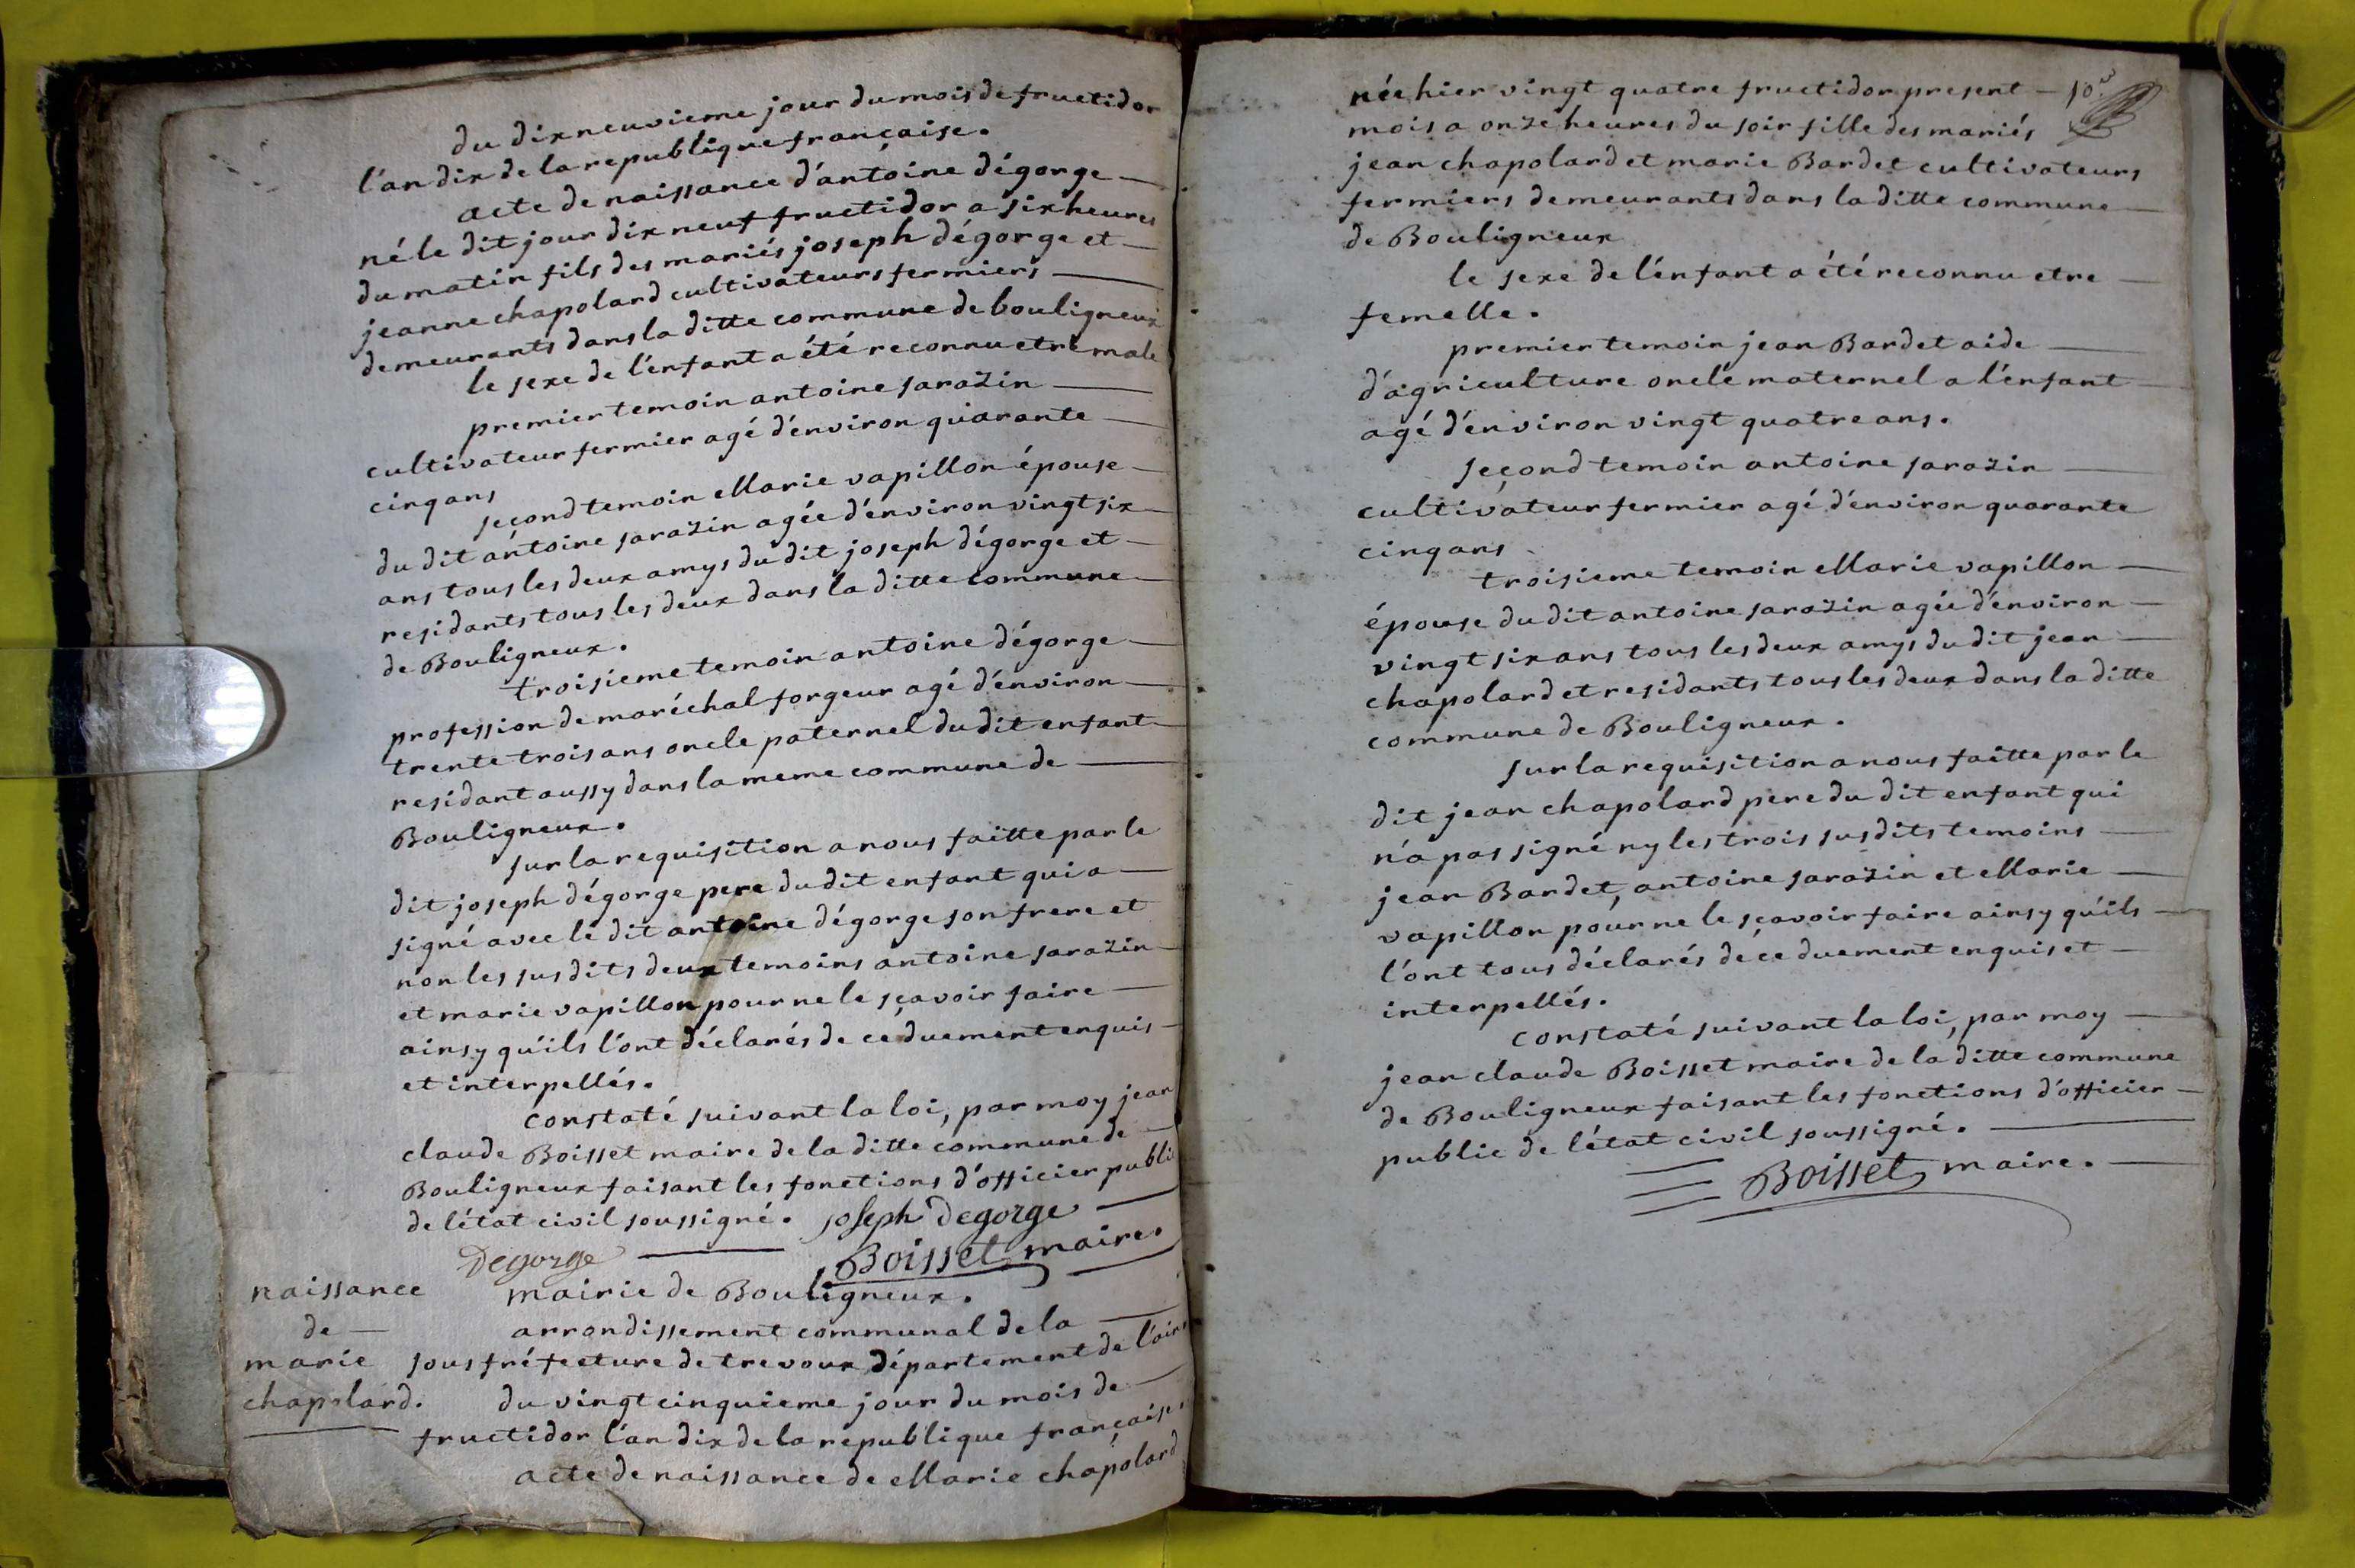 du dix neuvieme jour du mois de fructidor
l'an dix de la republique française.
acte de naissance d'antoine dégorge
né le dit jour dix neuf fructidor a six heures
du matin fils des mariés joseph dégorge et
jeanne chapolard cultivateurs fermiers
demeurants dans la ditte commune de bouligneux
le sexe de l'enfant a été reconnu etre male
premier temoin antoine sarazin
cultivateur fermier agé d'environ quarante
cinq ans
second temoin Marie vapillon épouse
du dit antoine sarazin agée d'environ vingt six
ans tous les deux amys du dit joseph dégorge et
residants tous les deux dans la ditte commune
de Bouligneux.
troisieme temoin antoine dégorge
profession de maréchal forgeur agé d'environ
trente trois ans oncle paternel du dit enfant
residant aussy dans la meme commune de
Bouligneux.
sur la requisition a nous faitte par le
dit joseph dégorge pere du dit enfant qui a
signé avec le dit antoine dégorge son frere et
non les susdits deux temoins antoine sarazin
et marie vapillon pour ne le sçavoir faire
ainsy qu'ils l'ont déclarés de ce duement enquis
et interpellés.
constaté suivant la loi, par moy jean
claude Boisset maire de la ditte commune de
Bouligneux faisant les fonctions d'officier publi
de l'état civil soussigné. joseph Degorge
Degorge Boisset maire.
naissance
de
marie
chapolard.
mairie de Bouligneux.
arrondissement communal de la
sous préfecture de trevoux département de l'ain
du vingt cinquieme jour du mois de
fructidor l'an dix de la republique française.
acte de naissance de Marie chapolard
née hier vingt quatre fructidor present 10.e
mois a onze heures du soir fille des mariés
jean chapolard et marie Bardet cultivateurs
fermiers demeurants dans la ditte commune
de Bouligneux
le sexe de l'enfant a été reconnu etre
femelle.
premier temoin jean Bardet aide
d'agriculture oncle maternel a l'enfant
agé d'environ vingt quatre ans.
second temoin antoine sarazin
cultivateur fermier agé d'environ quarante
cinq ans
troisieme temoin Marie vapillon
épouse du dit antoine sarazin agée d'environ
vingt six ans tous les deux amys du dit jean
chapolard et residants tous les deux dans la ditte
commune de Bouligneux.
sur la requisition a nous faitte par le
dit jean chapolard pere du dit enfant qui
n'a pas signé ny les trois susdits temoins
jean Bardet, antoine sarazin et Marie
vapillon pour ne le sçavoir faire ainsy qu'ils
l'ont tous déclarés de ce duement enquis et
interpellés.
constaté suivant la loi, par moy
jean claude Boisset maire de la ditte commune
de Bouligneux faisant les fonctions d'officier
public de l'état civil soussigné.
Boisset maire.